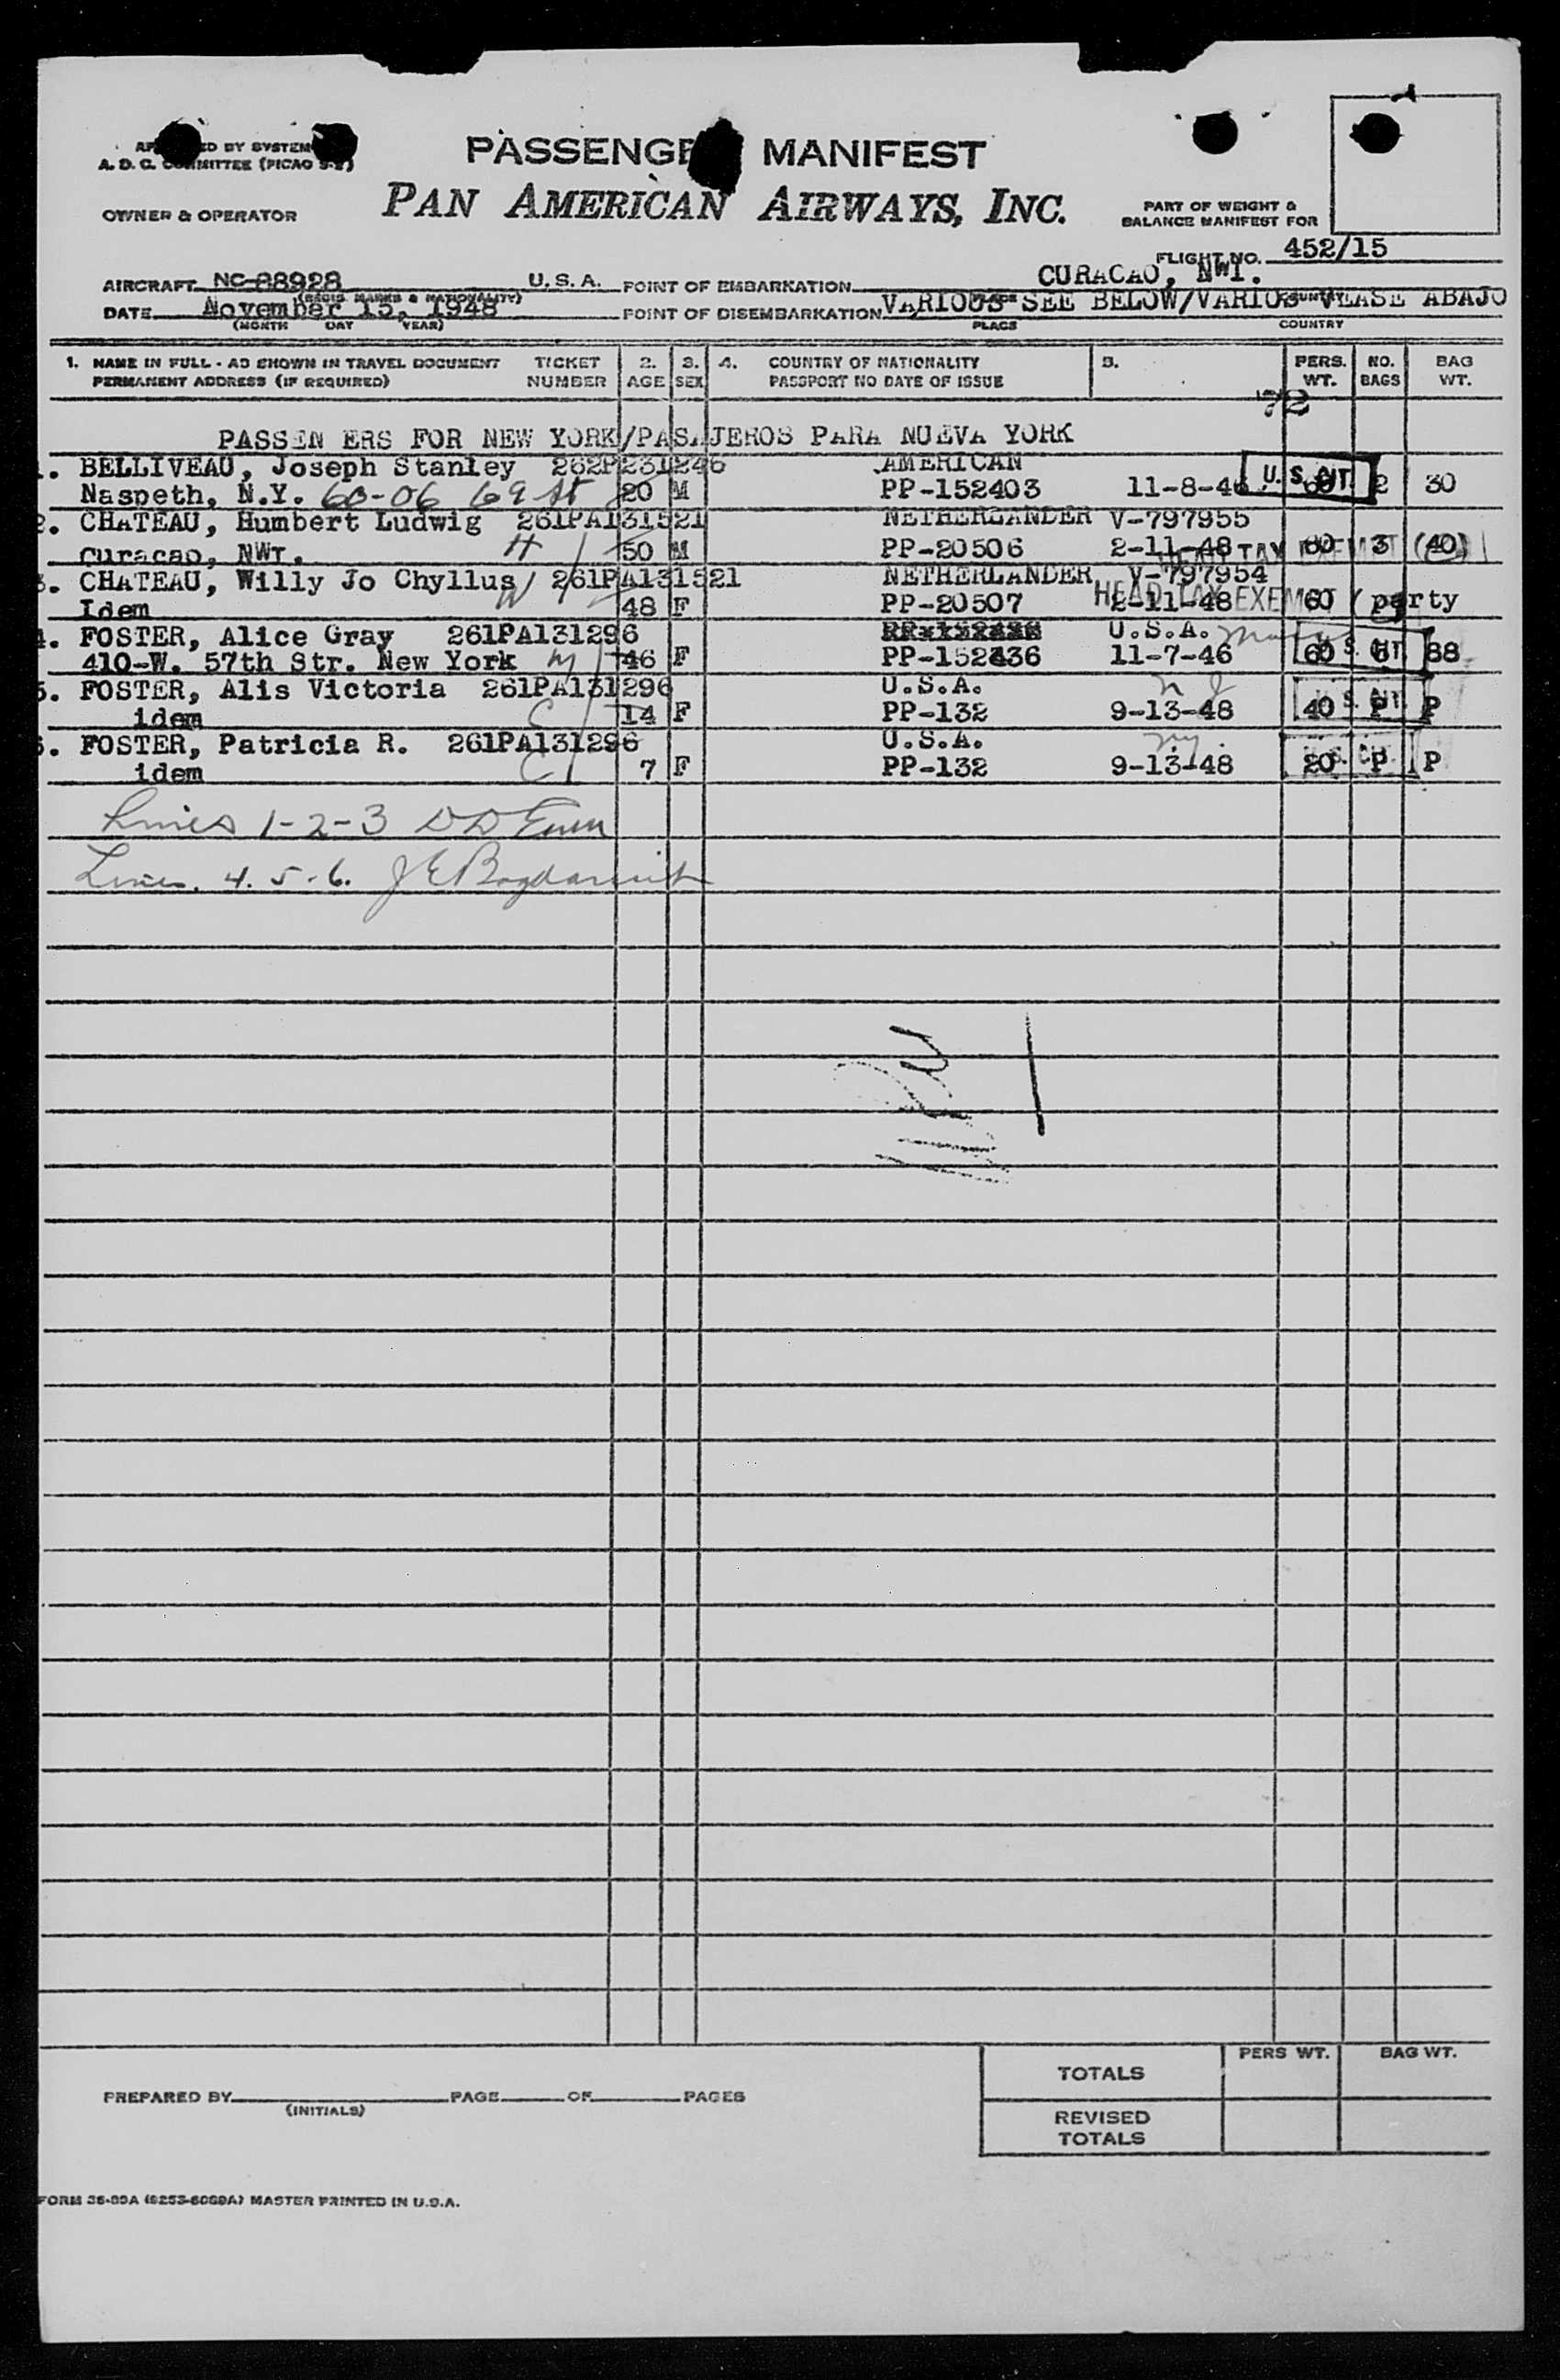 PASSENGE MANIFEST
PAN AMERICAN AIRWAYS, INC.
ED BY SYSTEM
A. D. C. COMMITTEE (PICAO
OWNER & OPERATOR
PART OF WEIGHT &
BALANCE MANIFEST FOR
FLIGHT NO. 452/15
AIRCRAFT NC-88928 U.S.A. POINT OF EMBARKATION CURACAO, NWI.
(REGIS. MARKS & NATIONALITY)
DATE November 15, 1948 POINT OF DISEMBARKATION VARIOUS SEE BELOW/VARIOS VEASE ABAJO
(MONTH DAY YEAR) PLACE COUNTRY
1. NAME IN FULL - AS SHOWN IN TRAVEL DOCUMENT TICKET 2. 3. 4. COUNTRY OF NATIONALITY 5. PERS. NO. BAG
PERMANENT ADDRESS (IF REQUIRED) NUMBER AGE SEX PASSPORT NO DATE OF ISSUE WT. BAGS WT.
72
PASSEN ERS FOR NEW YORK/PASAJEROS PARA NUEVA YORK
1. BELLIVEAU, Joseph Stanley 262P231246 AMERICAN
Naspeth, N.Y. 60-06 69 St 20 M PP-152403 11-8-46 U.S. CIT. 60 2 30
2. CHATEAU, Humbert Ludwig 261PA131521 NETHERLANDER V-797955
Curacao, NWI. H 50 M PP-20506 2-11-48 HEAD TAX EXEMPT 60 3 (40)
3. CHATEAU, Willy Jo Chyllus 261PA131521 NETHERLANDER V-797954
Idem W 48 F PP-20507 2-11-48 HEAD TAX EXEMPT 60 party
4. FOSTER, Alice Gray 261PA131296 U.S.A.
410-W. 57th Str. New York M 46 F PP-152436 11-7-46 60 6 88
5. FOSTER, Alis Victoria 261PA131296 U.S.A. N J
idem C 14 F PP-132 9-13-48 40 P P
6. FOSTER, Patricia R. 261PA131296 U.S.A. ny.
idem C 7 F PP-132 9-13-48 20 P P
Lines 1-2-3 DD
Lines. 4. 5. 6. J E
PREPARED BY PAGE OF PAGES
(INITIALS)
PERS WT. BAG WT.
TOTALS
REVISED
TOTALS
FORM 36-89A MASTER PRINTED IN U.S.A.